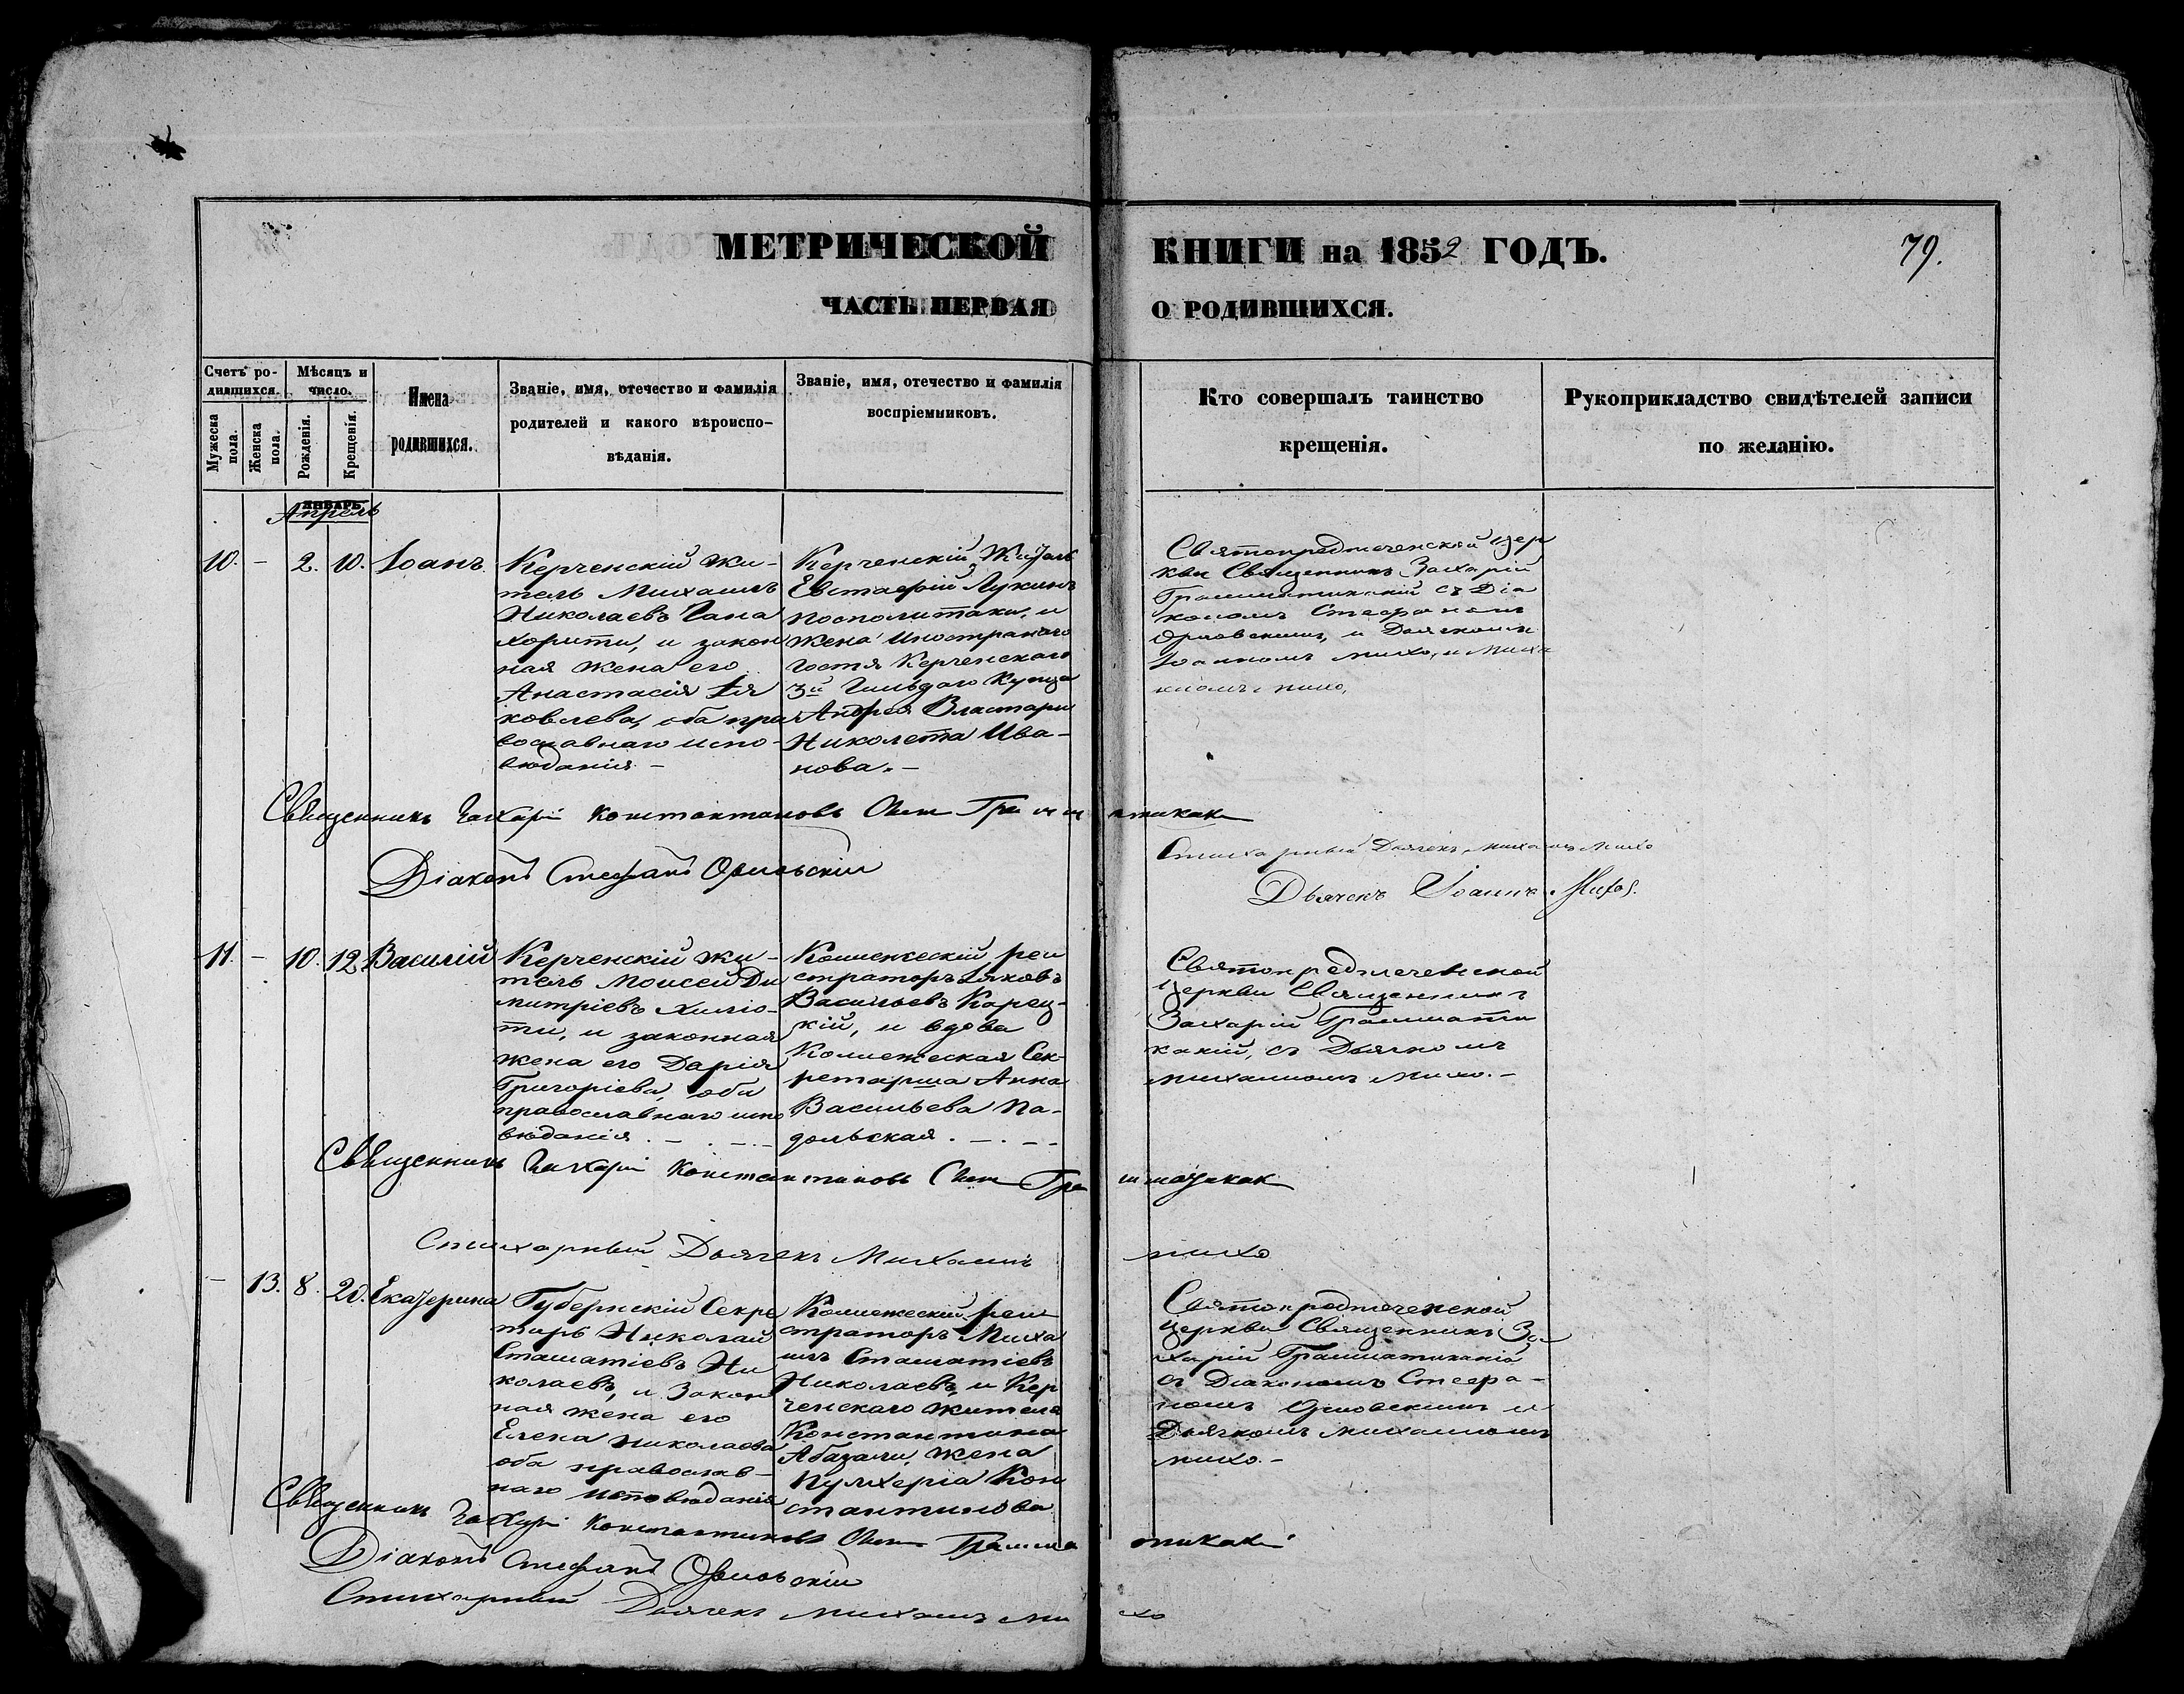 МЕТРИЧЕСКОЙ КНИГИ на 1852 ГОДЪ.
79.
ЧАСТЬ ПЕРВАЯ О РОДИВШИХСЯ.
Счетъ родившихся.
Мужеска пола.
Женска пола.
Мѣсяцъ и число.
Рожденія.
Крещенія.
Имена
родившихся.
Званіе, имя, отечество и фамилія
родителей и какого вѣроиспо-
вѣданія.
Званіе, имя, отечество и фамилія
воспріемниковъ.
Кто совершалъ таинство
крещенія.
Рукоприкладство свидѣтелей записи
по желанію.
ЯНВАРЬ.
Апрель
10. – 2. 10. Іоанъ.
Керченскій жи-
тель Михаилъ
Николаевъ
и закон
ная жена его
Анастасія Ія
ковлева, оба пра
вославнаго испо-
вѣданія –
Керченскій Житель
Евстафій Лукинъ
и
жена Иностранаго
гостя Керченскаго
3й Гильдаго Купца
Андрея Властари
Николета Ива-
нова. –
Святопредтеченской цер
кви Священникъ Захарій
съ Діа
кономъ Стефаномъ
и Дьячкомъ
Іоанномъ Михо, и Миха
иломъ Михо,
Священникъ Захарій Константиновъ Грамматикаки
Діаконъ Стефанъ
Стихарный Дьячекъ Михаилъ Михо
Дьячекъ Іоаннъ
11. – 10. 12. Василій
Керченскій жи-
тель Моисей Ди
митріевъ Хиліо-
ти, и законная
жена его Дарія
Григоріева, оба
православнаго испо
вѣданія. – . – . –
Колежескій реи
страторъ Іяковъ
Васильевъ Корец-
кій, и вдова
Колежеская Сек-
ретарша Анна
Васильева По-
дольская. – . – –
Святопредтеченской
церкви Священникъ
Захарій Граммати
какій, съ Дьячкомъ
Михаиломъ Михо. –
Священникъ Захарій Константиновъ Грамматикаки
Стихарный Дьячекъ Михаилъ Михо
– 13. 8. 20. Екатерина
Губернскій Секре
тарь Николай
Стаматіевъ Ни
колаевъ, и Закон
ная жена его
Елена Николаева
оба православ-
наго исповѣданія
Колежескій реи
страторъ Миха
илъ Стаматіевъ
Николаевъ, и Кер
ченскаго жителя
Константина
жена
Пулхерія Кон
стантинова
Святопредтеченской
церкви Священникъ За
харій Грамматикакій
съ Діакономъ Стефа-
номъ и
Дьячкомъ Михаиломъ
Михо. –
Священникъ Захарій Константиновъ Грамматикаки
Діаконъ Стефанъ
Стихарный Дьячекъ Михаилъ Михо